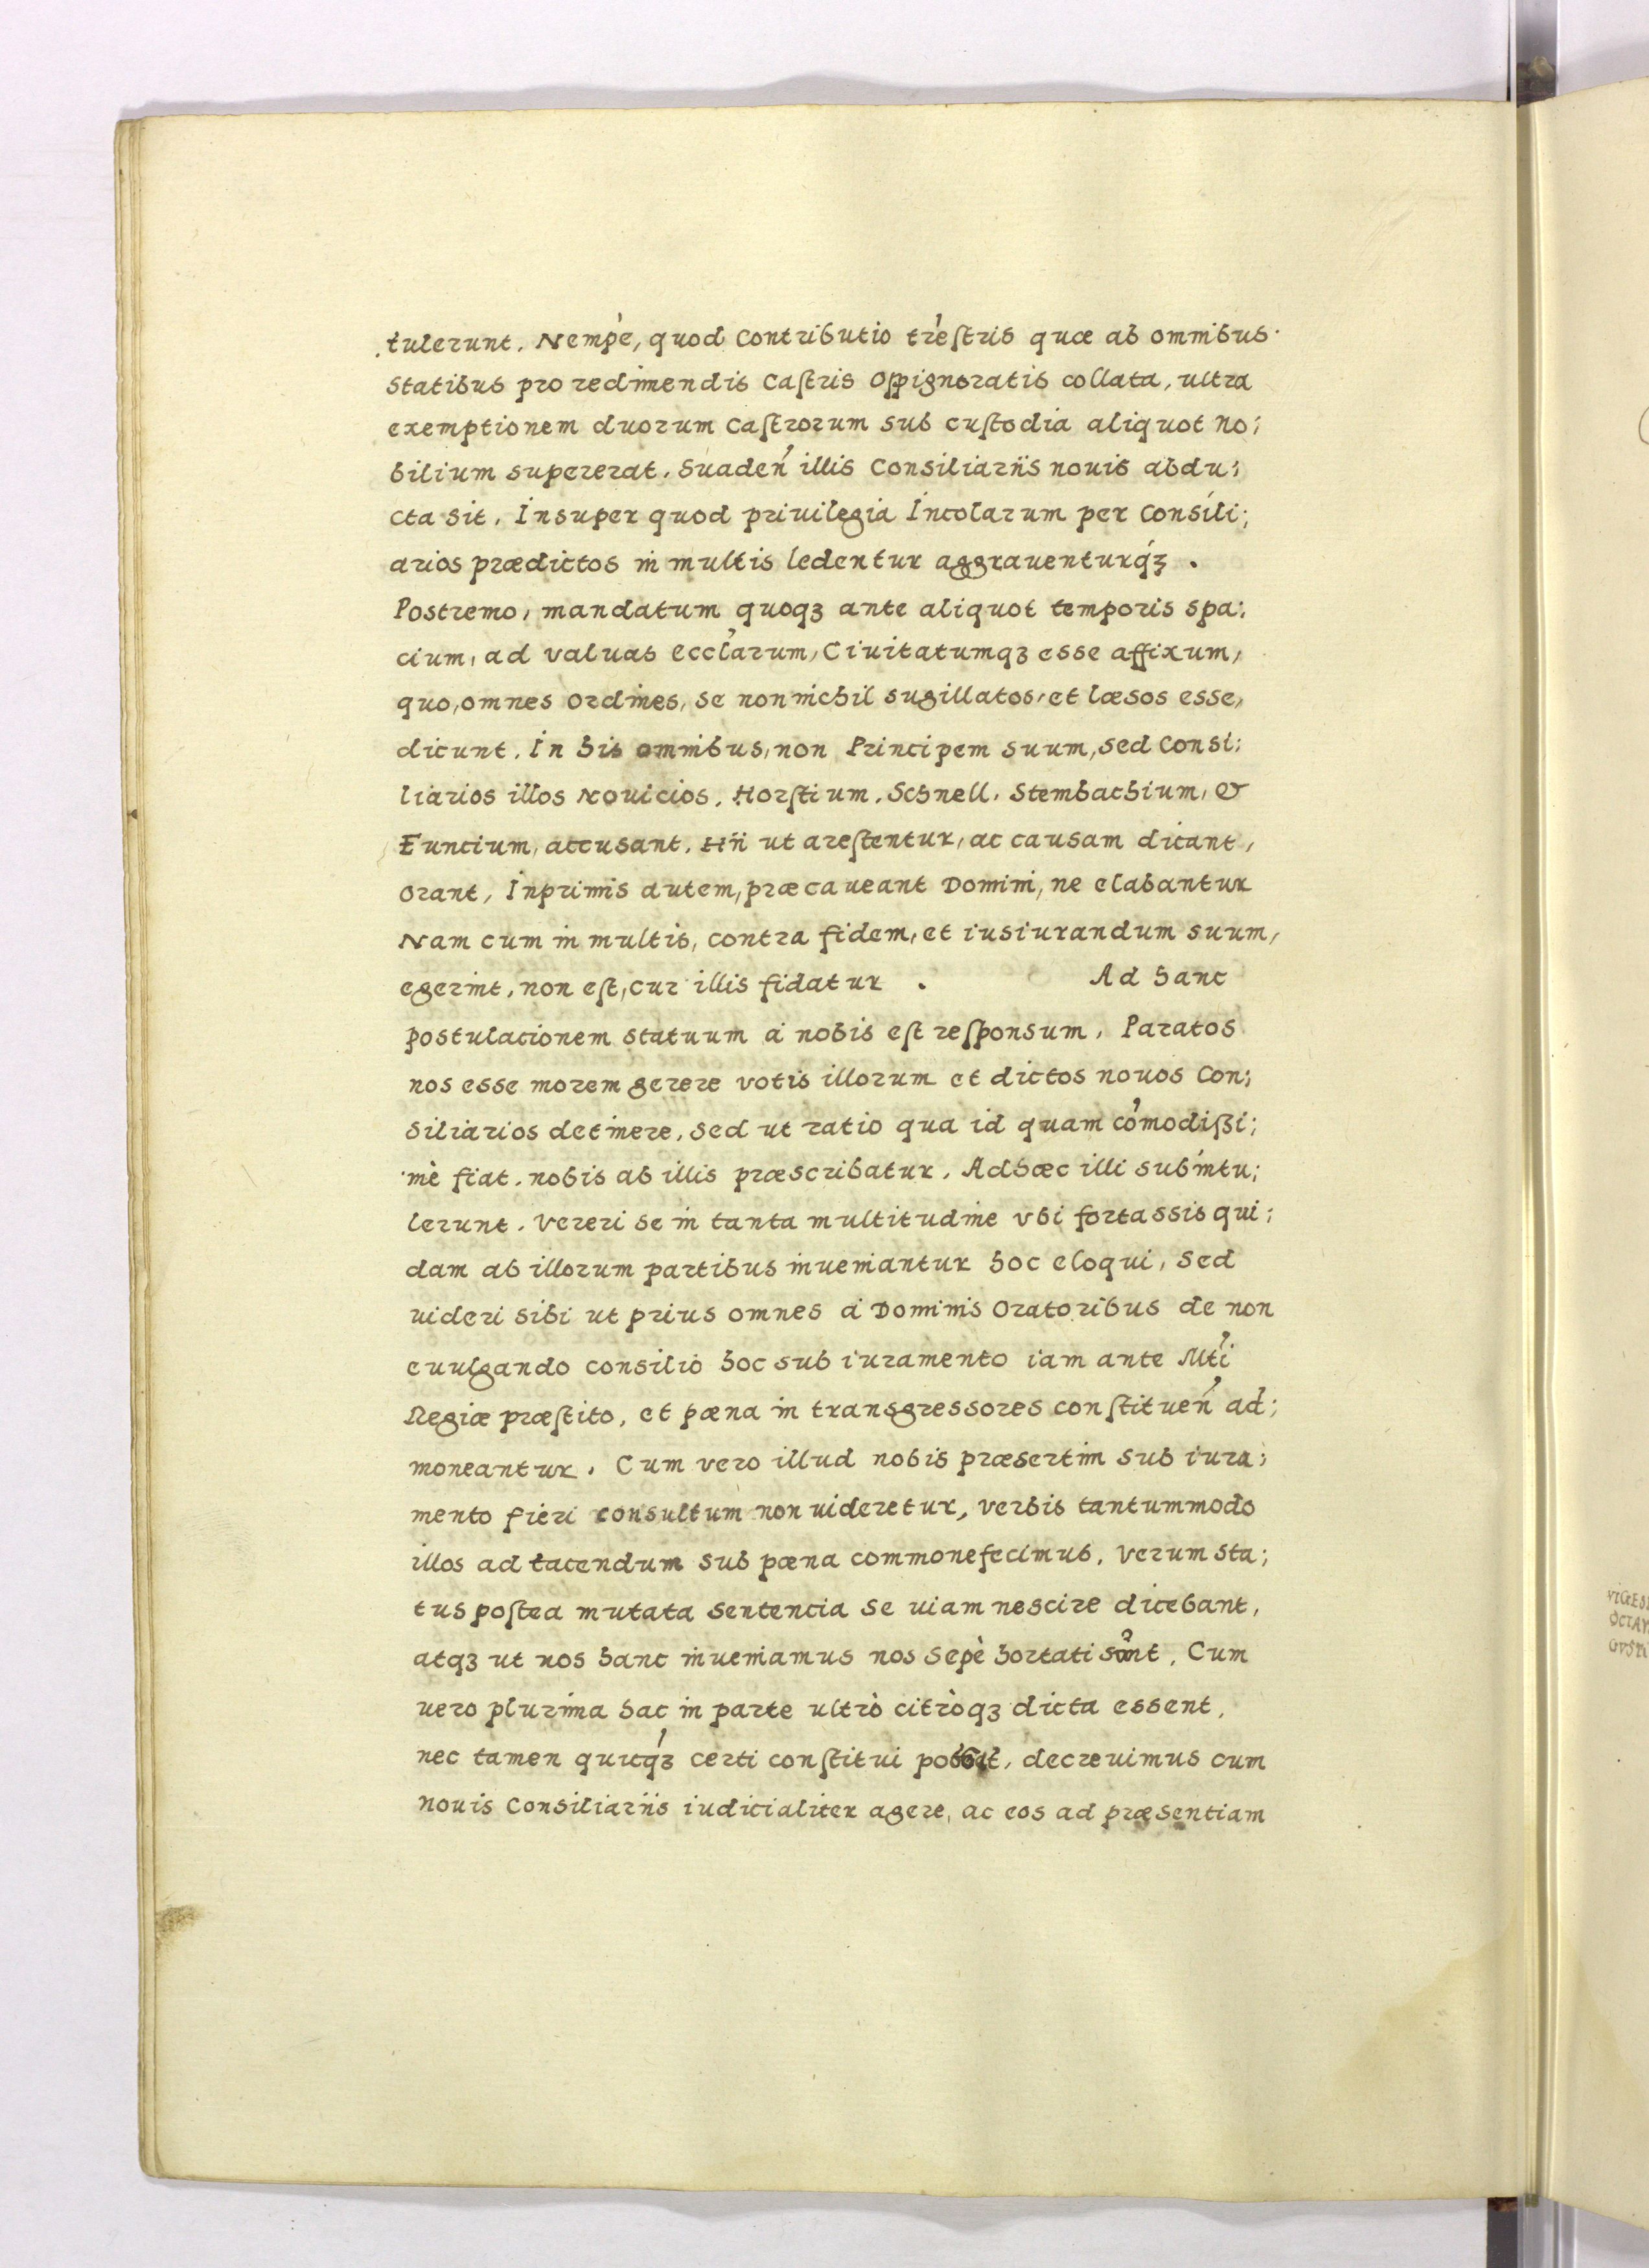 tulerunt. Nempè, quod Contributio tr̀estris quæ ab omnibus
statibus pro redimendis Castris Oppignoratis collata, ultra
exemptionem duorum Castrorum sub custodia aliquot no;
bilium supererat. Suaden̛ illis Consiliariis nouis abdu;
cta sit. Insuper quod priuilegia Incolarum per Consili;
arios prædictos in multis ledentur aggrauenturq́ꝫ.
Postremo, mandatum quoqꝫ ante aliquot temporis spa;
cium, ad valuas eccl̛arum, Ciuitatumqꝫ esse affixum,
quo, omnes Ordines, se non nichil sugillatos, et læsos esse,
dicunt. In his omnibus, non Principem suum, sed Consi;
liarios illos Nouicios. Horstium. Schnell. Stembachium, &
Euncium, accusant. Hii ut arestentur, ac causam dicant,
Orant, Inprimis autem, præcaueant Domini, ne elabantur
Nam cum in multis, contra fidem, et iusiurandum suum,
egerint, non est, cur illis fidatur. Ad hanc
postulacionem statuum à nobis est responsum. Paratos
nos esse morem gerere votis illorum et dictos nouos Con;
siliarios detinere, sed ut ratio qua id quam com̛odißi;
mè fiat. nobis ab illis præscribatur. Adhæc illi subintu;
lerunt. Vereri se in tanta multitudine vbi fortassis qui;
dam ab illorum partibus inueniantur hoc eloqui, Sed
uideri sibi ut prius omnes à Dominis Oratoribus de non
euulgando consilio hoc sub iuramento iam ante Mt̛i
Regiæ præstito, et pæna in transgressores constituen̛ ad;
moneantur. Cum vero illud nobis præsertim sub iura;
mento fieri consultum non uideretur, verbis tantummodo
illos ad tacendum sub pæna commonefecimus. Verum sta;
tus postea mutata sentencia se uiam nescire dicebant,
atqꝫ ut nos hanc inueniamus nos sepè hortati sunt. Cum
uero plurima hac in parte ultrò citròqꝫ dicta essent,
nec tamen quicq́ꝫ certi constitui , decreuimus cum
nouis Consiliariis iudicialiter agere, ac eos ad præsentiam